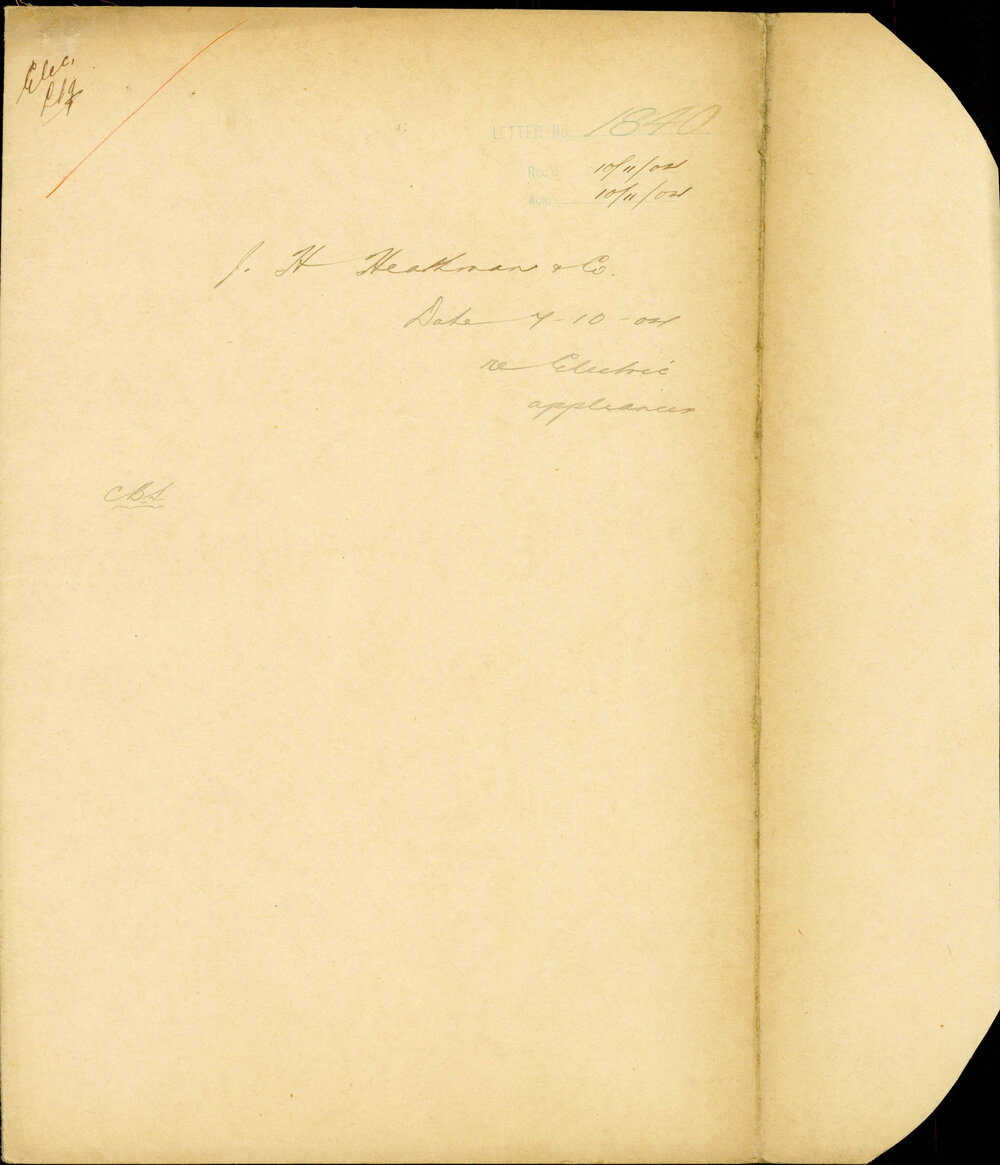 Elec.
LETTER No. 1840
Rec'd 10/11/04
Ack. 10/11/04
J. H Heathman & Co.
Date 7-10-04
re Electric
appliances